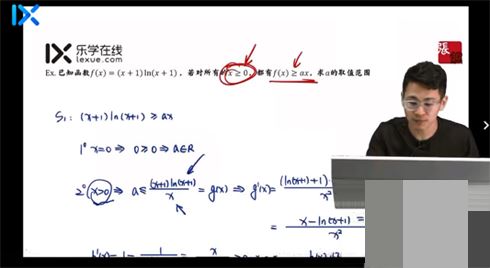 乐学在线
lexue.com
乐学在线
lexue.com
張
Ex. 已知函数f(x) = (x + 1) ln(x + 1)，若对所有的x ≥ 0，都有f(x) ≥ ax，求a的取值范围
S₁: (x+1) ln(x+1) ≥ ax
1° x=0 ⇒ 0 ≥ 0 ⇒ a∈R
2° x>0 ⇒ a ≤ (x+1)ln(x+1)/x = g(x) ⇒ g'(x) = (ln(x+1)+1)·
x²
= x - ln(x+1) =/x²
h'(x) = 1 - 1 = x